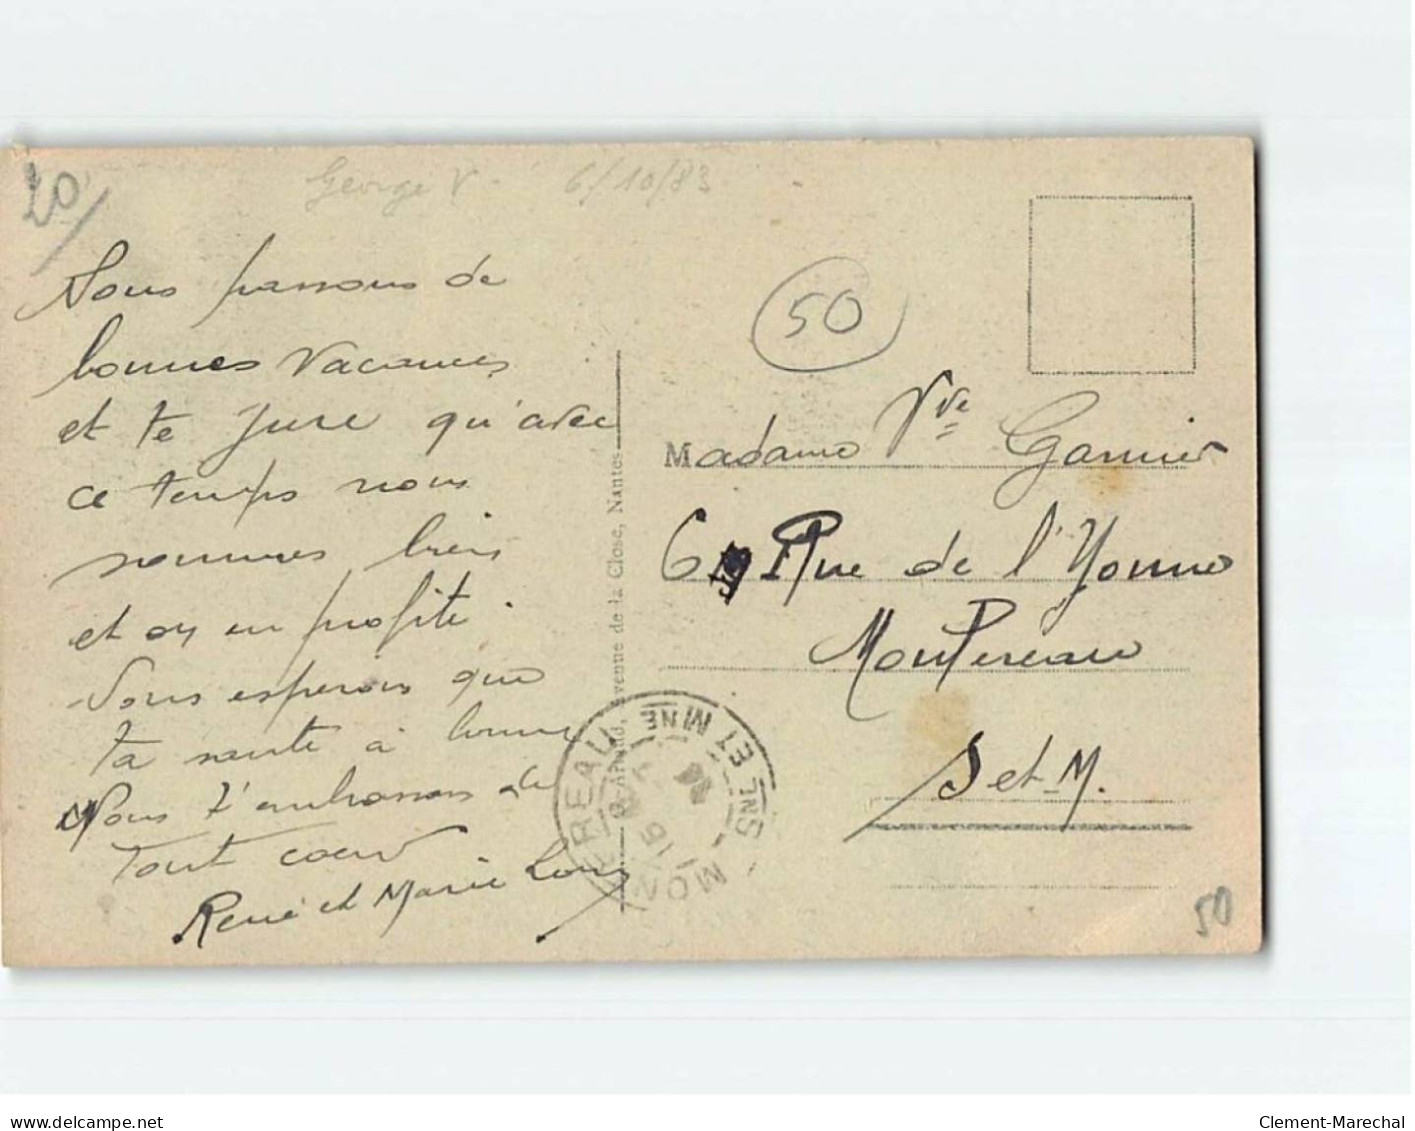 20
George V - 6/10/83
Nous passons de
bonnes vacances
et te jure qu'avec
ce temps nous
sommes bien
et on en profite.
Nous esperons que
ta santé à bonne
Nous t'embrassons de
tout coeur
René et Marie Lou
Avenue de la Close, Nantes
MONTEREAU SNE ET MNE
15
50
Madame Vve Garnier
6 Rue de l'Yonne
Montereau
S et M.
50
delcampe.net
Clement-Marechal